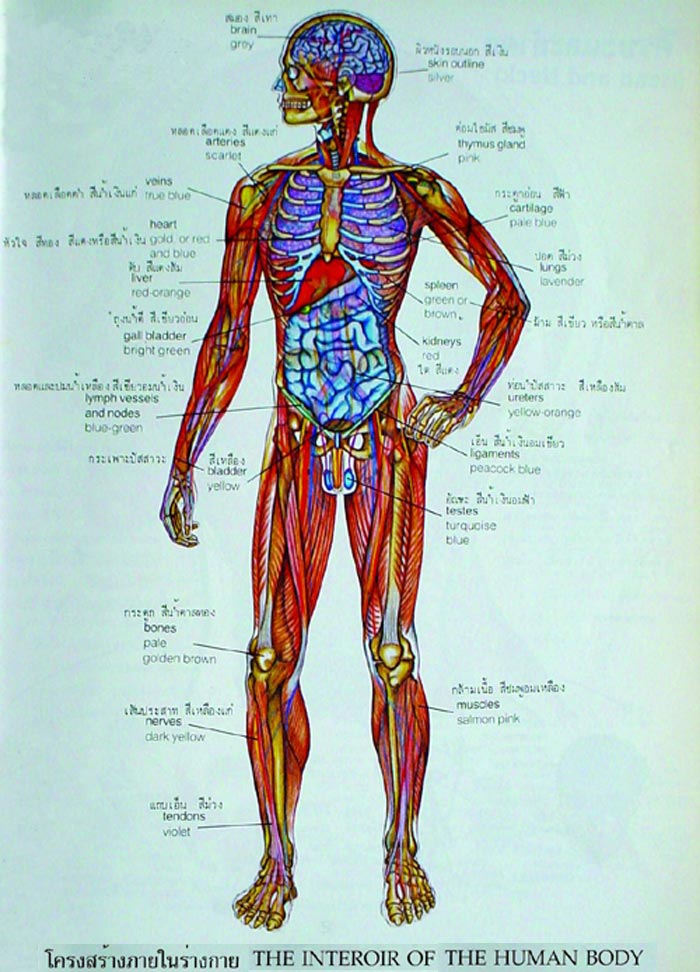 สมอง สีเทา
brain
grey
ผิวหนังรอบนอก สีเงิน
skin outline
silver
หลอดเลือดแดง สีแดงแก่
arteries
scarlet
ต่อมไธมัส สีชมพู
thymus gland
pink
veins
หลอดเลือดดำ สีน้ำเงินแก่ true blue
กระดูกอ่อน สีฟ้า
cartilage
pale blue
heart
หัวใจ สีทอง สีแดงหรือสีน้ำเงิน gold, or red
and blue
ปอด สีม่วง
lungs
lavender
ตับ สีแดงส้ม
liver
red-orange
spleen
green or
brown
ม้าม สีเขียว หรือสีน้ำตาล
ถุงน้ำดี สีเขียวอ่อน
gall bladder
bright green
kidneys
red
ไต สีแดง
หลอดและปมน้ำเหลือง สีเขียวอมน้ำเงิน
lymph vessels
and nodes
blue-green
ท่อนำปัสสาวะ สีเหลืองส้ม
ureters
yellow-orange
เอ็น สีน้ำเงินอมเขียว
ligaments
peacock blue
กระเพาะปัสสาวะ สีเหลือง
bladder
yellow
อัณฑะ สีน้ำเงินอมฟ้า
testes
turquoise
blue
กระดูก สีน้ำตาลทอง
bones
pale
golden brown
กล้ามเนื้อ สีชมพูอมเหลือง
muscles
salmon pink
เส้นประสาท สีเหลืองแก่
nerves
dark yellow
แถบเอ็น สีม่วง
tendons
violet
โครงสร้างภายในร่างกาย THE INTEROIR OF THE HUMAN BODY